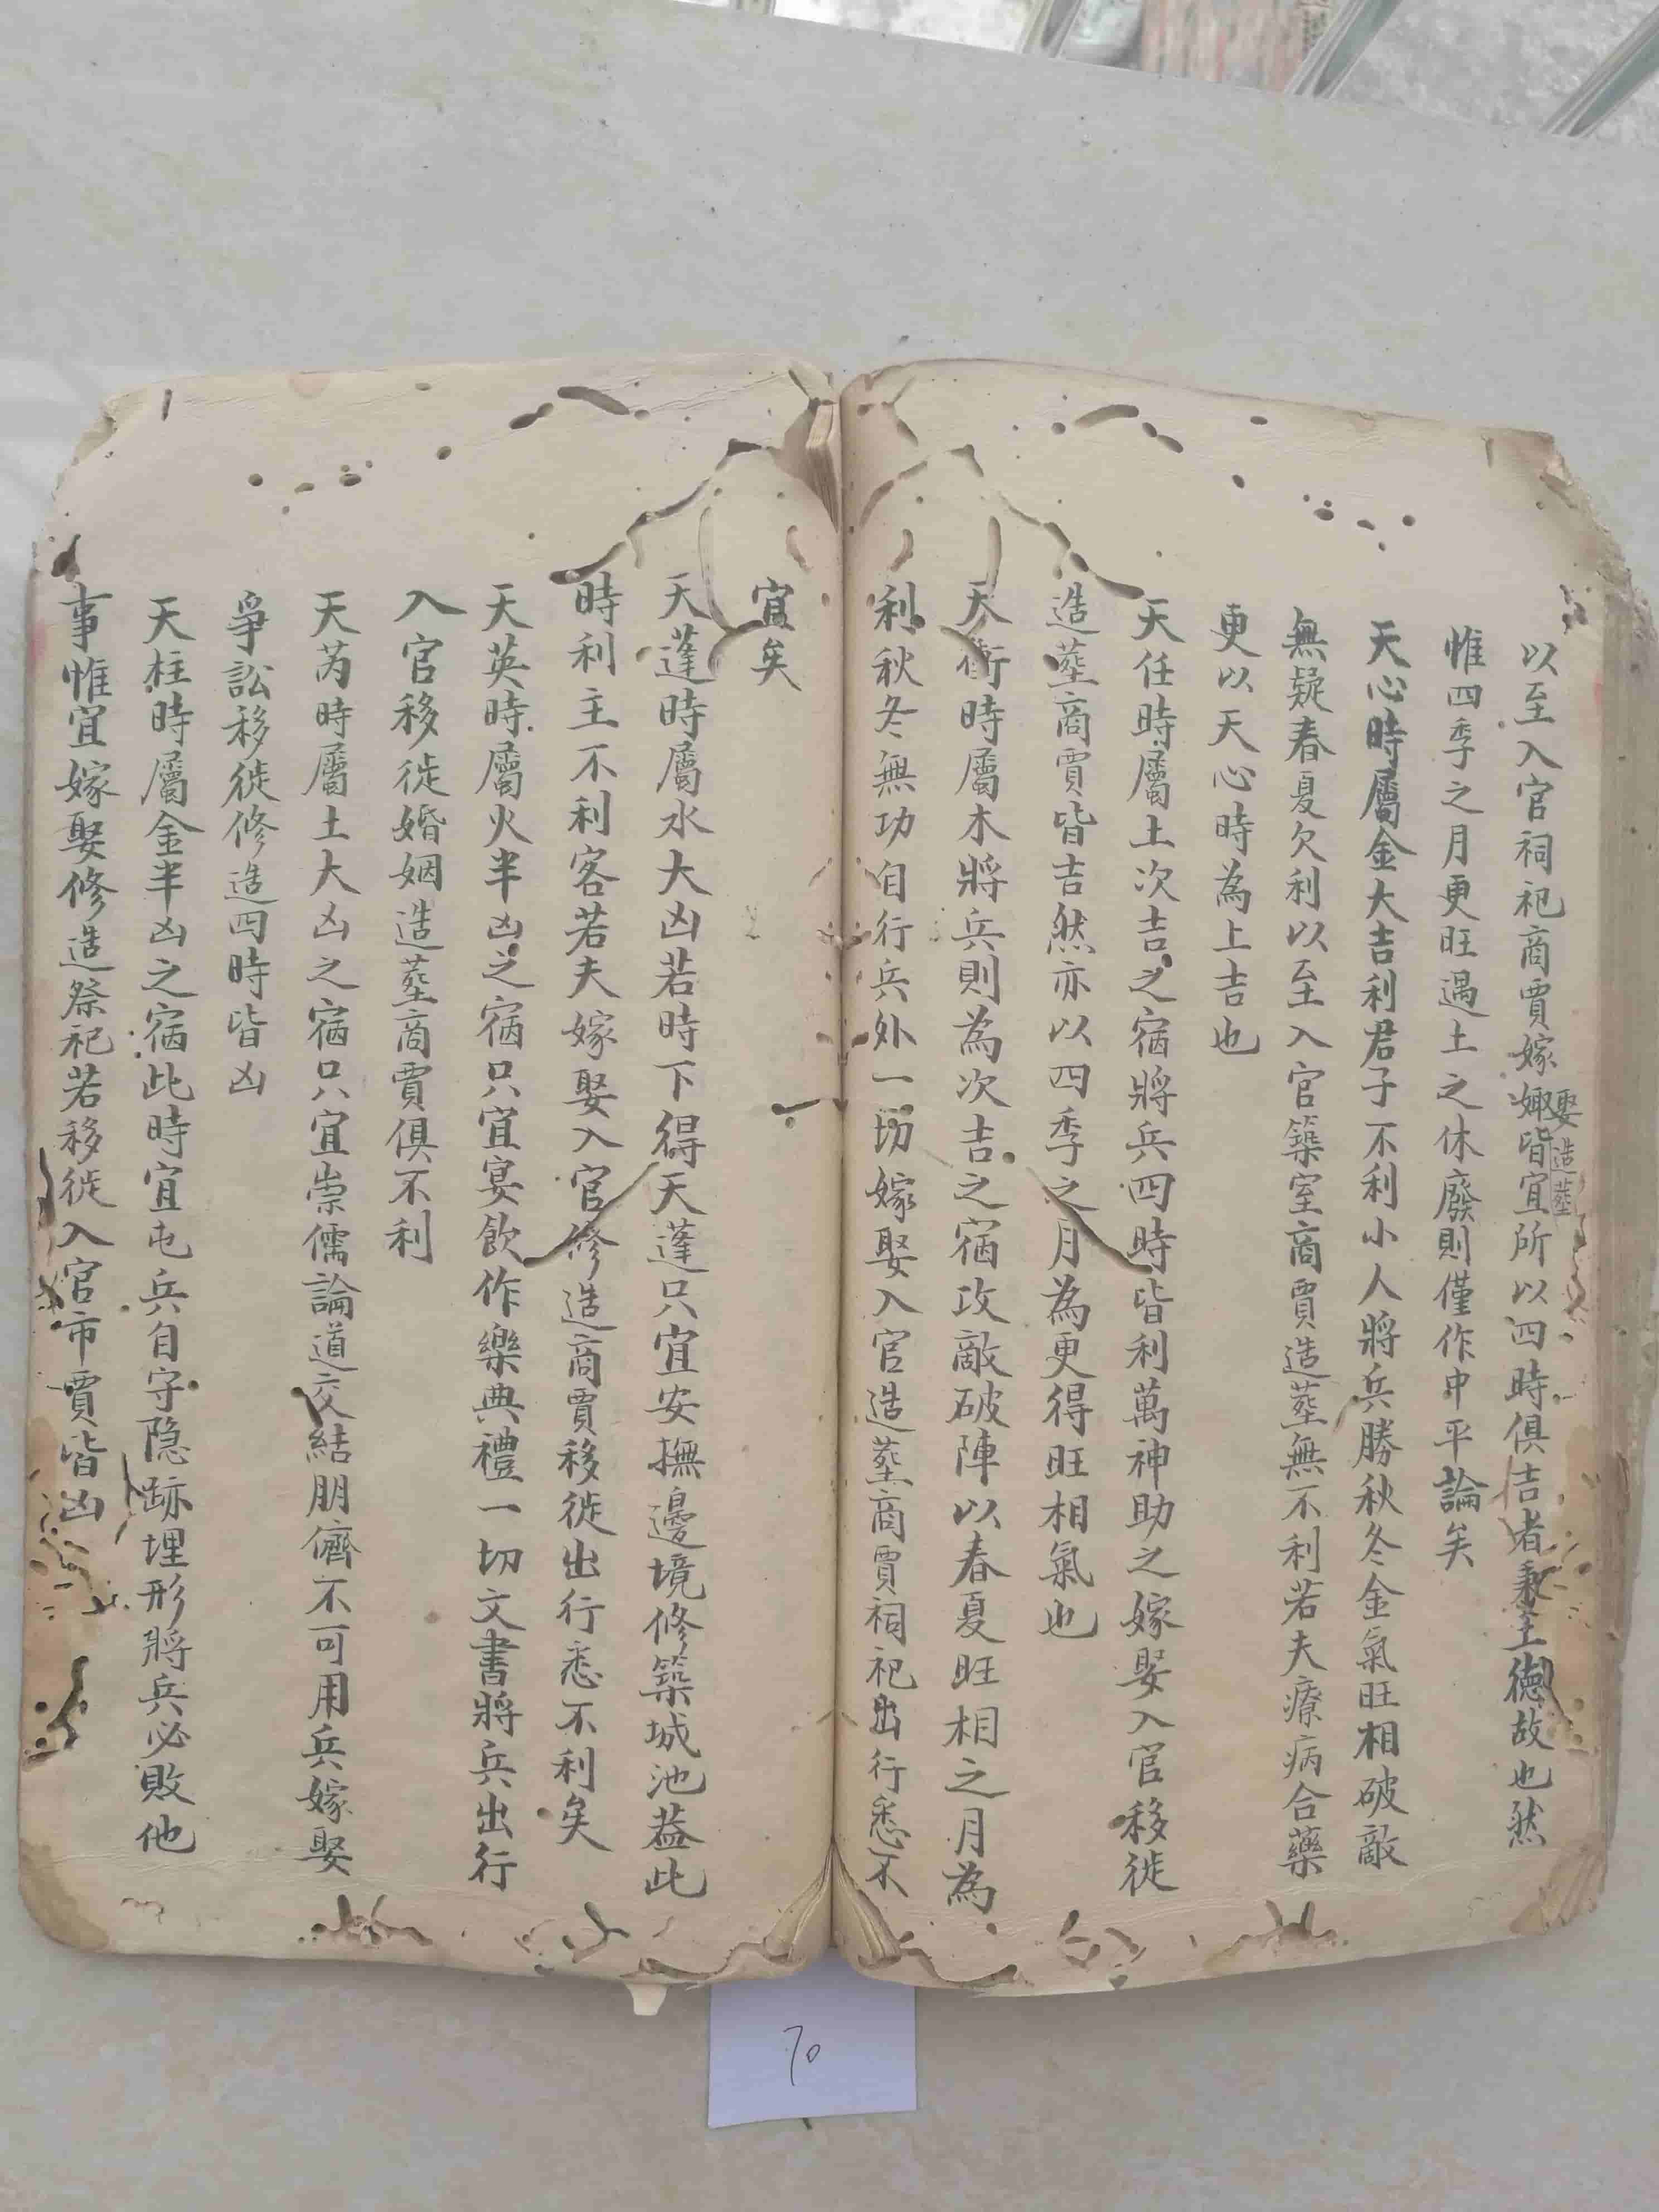 以至入官祠祀商賈嫁娵皆宜所以四時俱吉者秉土德故也然
娶造塟
惟四季之月更旺遇土之休廢則僅作中平論矣
天心時屬金大吉利君子不利小人將兵勝秋冬金氣旺相破敵
無疑春夏欠利以至入官築室商賈造塟無不利若夫療病合藥
更以天心時為上吉也
天任時屬土次吉之宿將兵四時皆利萬神助之嫁娶入官移徙
造塟商賈皆吉然亦以四季之月為更得旺相氣也
天衝時屬木將兵則為次吉之宿攻敵破陣以春夏旺相之月為
利秋冬無功自行兵外一切嫁娶入官造塟商賈祠祀出行悉不
宜矣
天蓬時屬水大凶若時下得天蓬只宜安撫邊境修築城池葢此
時利主不利客若夫嫁娶入官修造商賈移徙出行悉不利矣
天英時屬火半凶之宿只宜宴飲作樂典禮一切文書將兵出行
入官移徙婚姻造塟商賈俱不利
天芮時屬土大凶之宿只宜崇儒論道交結朋儕不可用兵嫁娶
爭訟移徙修造四時皆凶
天柱時屬金半凶之宿此時宜屯兵自守隐跡埋形將兵必敗他
事惟宜嫁娶修造祭祀若移徙入官市賈皆凶
70